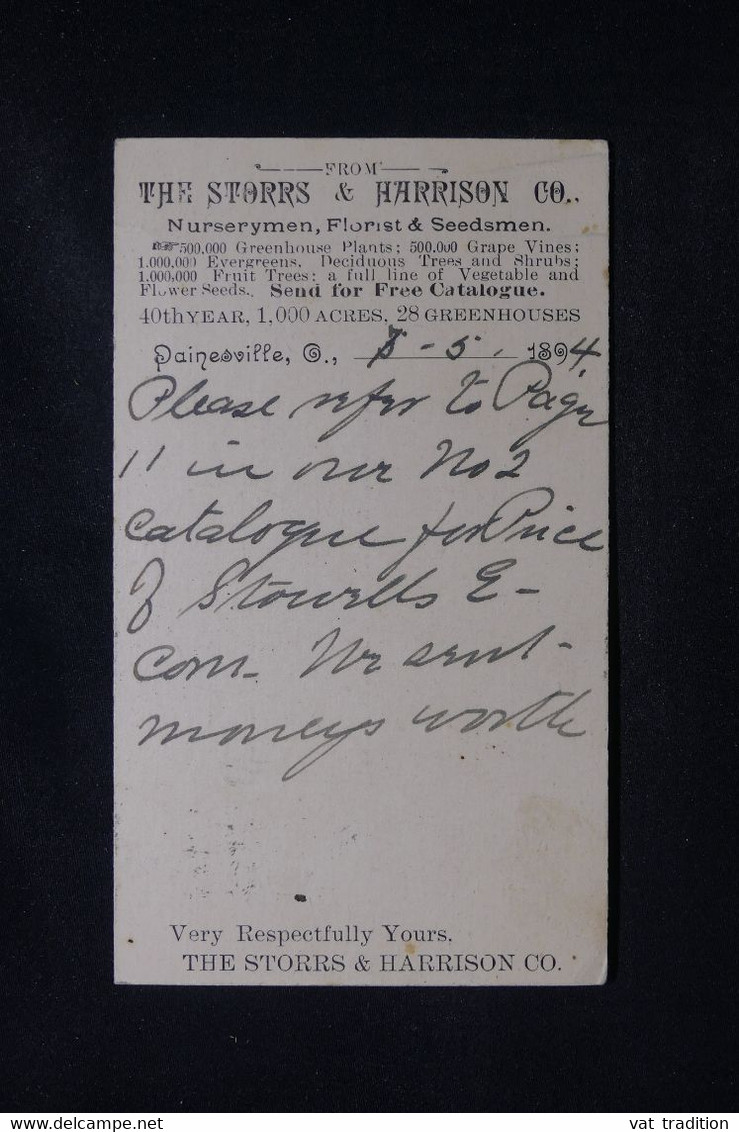 FROM
THE STORRS & HARRISON CO.,
Nurserymen, Florist & Seedsmen.
☞500,000 Greenhouse Plants; 500,000 Grape Vines;
1,000,000 Evergreens. Deciduous Trees and Shrubs;
1,000,000 Fruit Trees; a full line of Vegetable and
Flower Seeds. Send for Free Catalogue.
40th YEAR, 1,000 ACRES, 28 GREENHOUSES
Painesville, O., - 5, 1894.
Please refer to Page
11 in our No 2
catalogue for Price
of Stowells E-
corn. We sent
moneys worth
Very Respectfully Yours.
THE STORRS & HARRISON CO.
www.delcampe.net
vat tradition